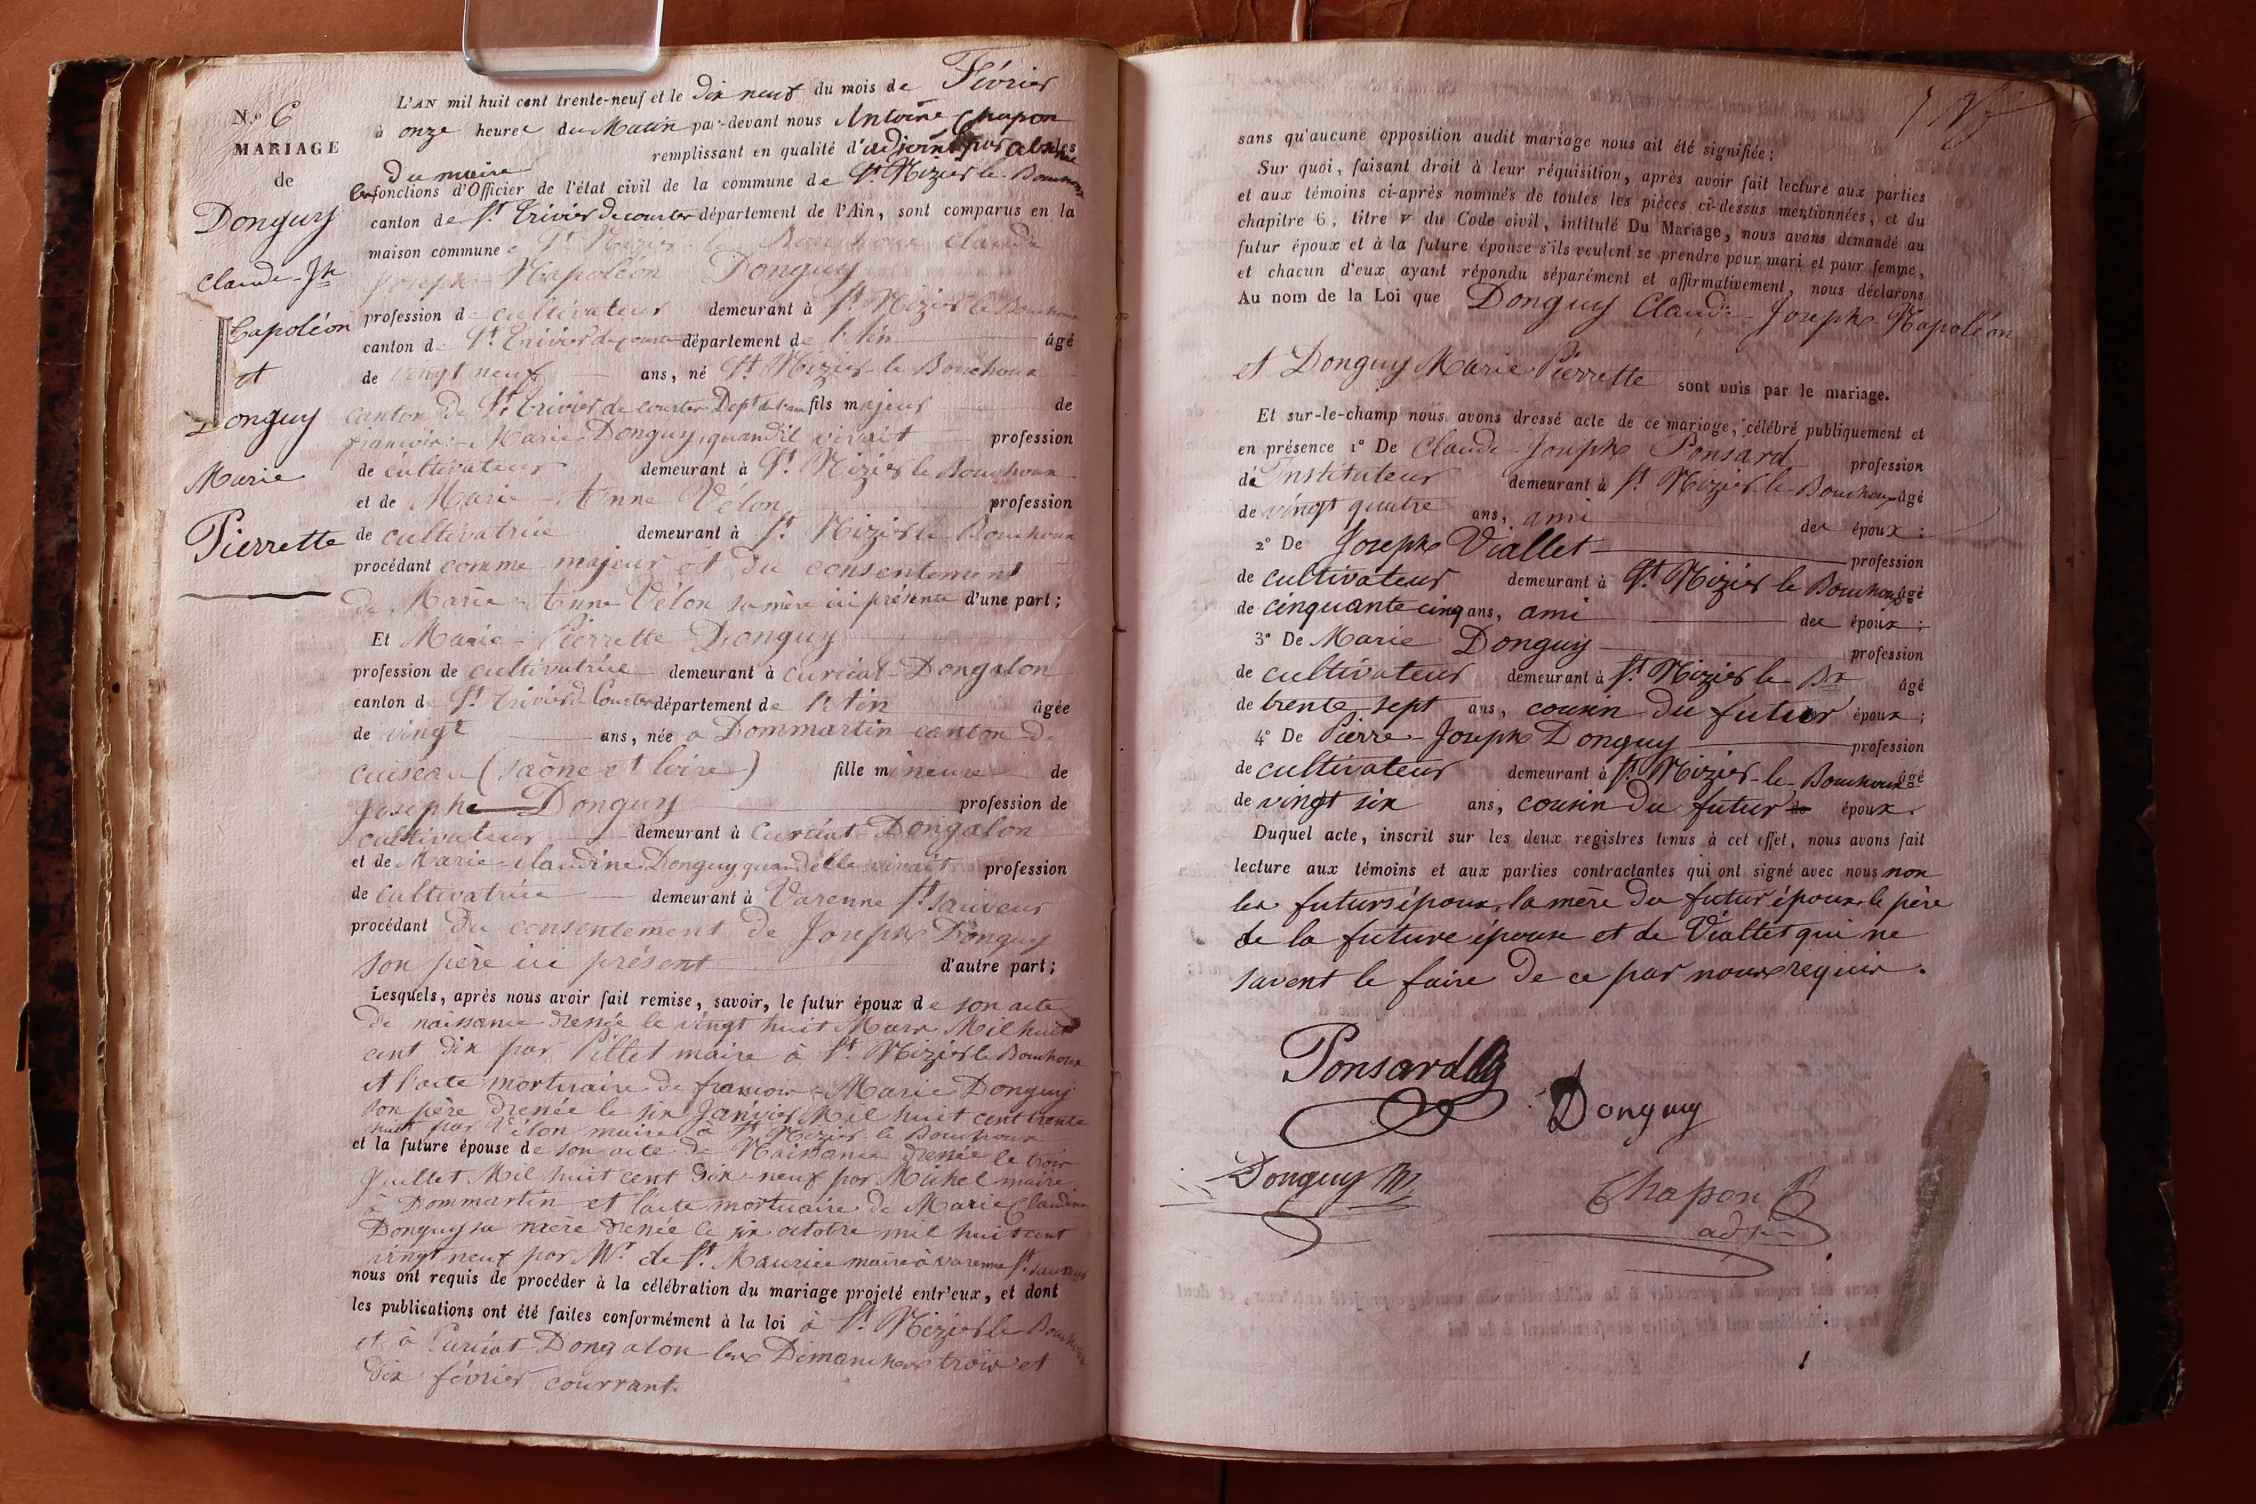 N.º 6
MARIAGE
de
Donguy
Claude-Jh
Napoléon
et
Donguy
Marie
Pierrette
L'AN mil huit cent trente-neuf et le dix neuf du mois de Février
à onze heures du Matin par-devant nous Antoine Chapon
remplissant en qualité d'adjoint par absence
du maire les fonctions d'Officier de l'état civil de la commune de St Nizier le Bouchoux
canton de St Trivier de courtes département de l'Ain, sont comparus en la
maison commune de St Nizier le Bouchoux Claude
Joseph Napoléon Donguy
profession de cultivateur demeurant à St Nizier le Bouchoux
canton de St Trivier de courtes département de l'Ain âgé
de vingt neuf ans, né St Nizier le Bouchoux
canton de St trivier de courtes Dept de l'ain fils majeur de
françois-Marie Donguy, quand il vivait profession
de cultivateur demeurant à St Nizier le Bouchoux
et de Marie-Anne Vélon profession
de cultivatrice demeurant à St Nizier le Bouchoux
procédant comme majeur et du consentement
de Marie-Anne Vélon sa mère ici présente d'une part;
Et Marie-Pierrette Donguy
profession de cultivatrice demeurant à curciat-Dongalon
canton de St Trivier de Courtes département de l'Ain âgée
de vingt ans, née à Dommartin canton de
cuiseau (saône et loire) fille mineure de
Joseph Donguy profession de
cultivateur demeurant à Curciat-Dongalon
et de Marie-claudine Donguy quand elle vivait profession
de cultivatrice demeurant à Varenne St sauveur
procédant du consentement de Joseph Donguy
son père ici présent d'autre part;
Lesquels, après nous avoir fait remise, savoir, le futur époux de son acte
de naissance dressée le vingt huit Mars Mil huit
cent dix par Pillet maire à St Nizier le Bouchoux
et l'acte mortuaire de françois-Marie Donguy
son père dressée le six Janvier Mil huit cent trente
huit par Vélon maire à St Nizier le Bouchoux
et la future épouse de son acte de Naissance dressée le trois
Juillet Mil huit cent dix-neuf par Michel maire
à Dommartin et l'acte mortuaire de Marie Claudine
Donguy sa mère dressée le six octobre mil huit cent
vingt neuf par Mr de St Maurice maire à varenne St sauveur
nous ont requis de procéder à la célébration du mariage projeté entr'eux, et dont
les publications ont été faites conformément à la loi à St Nizier le Bouchoux
et à Curciat Dongalon les Dimanches trois et
dix février courrant.
sans qu'aucune opposition audit mariage nous ait été signifiée;
Sur quoi, faisant droit à leur réquisition, après avoir fait lecture aux parties
et aux témoins ci-après nommés de toutes les pièces ci-dessus mentionnées, et du
chapitre 6, titre v du Code civil, intitulé Du Mariage, nous avons demandé au
futur époux et à la future épouse s'ils veulent se prendre pour mari et pour femme,
et chacun d'eux ayant répondu séparément et affirmativement, nous déclarons
Au nom de la Loi que Donguy Claude-Joseph-Napoléon
et Donguy Marie Pierrette sont unis par le mariage.
Et sur-le-champ nous avons dressé acte de ce mariage, célébré publiquement et
en présence 1º De Claude-Joseph Ponsard profession
de Instituteur demeurant à St Nizier le Bouchoux âgé
de vingt quatre ans, ami des époux;
2º De Joseph Viallet profession
de cultivateur demeurant à St Nizier le Bouchoux âgé
de cinquante cinq ans, ami des époux;
3º De Marie Donguy profession
de cultivateur demeurant à St Nizier le Bx âgé
de trente sept ans, cousin du futur époux;
4º De Pierre-Joseph Donguy profession
de cultivateur demeurant à St Nizier-le-Bouchoux âgé
de vingt six ans, cousin du futur de époux.
Duquel acte, inscrit sur les deux registres tenus à cet effet, nous avons fait
lecture aux témoins et aux parties contractantes qui ont signé avec nous non
les futurs époux, la mère du futur époux, le père
de la future épouse et de Viallet qui ne
savent le faire de ce par nous requis.
Ponsard
Donguy
Donguy M
Chapon
adj